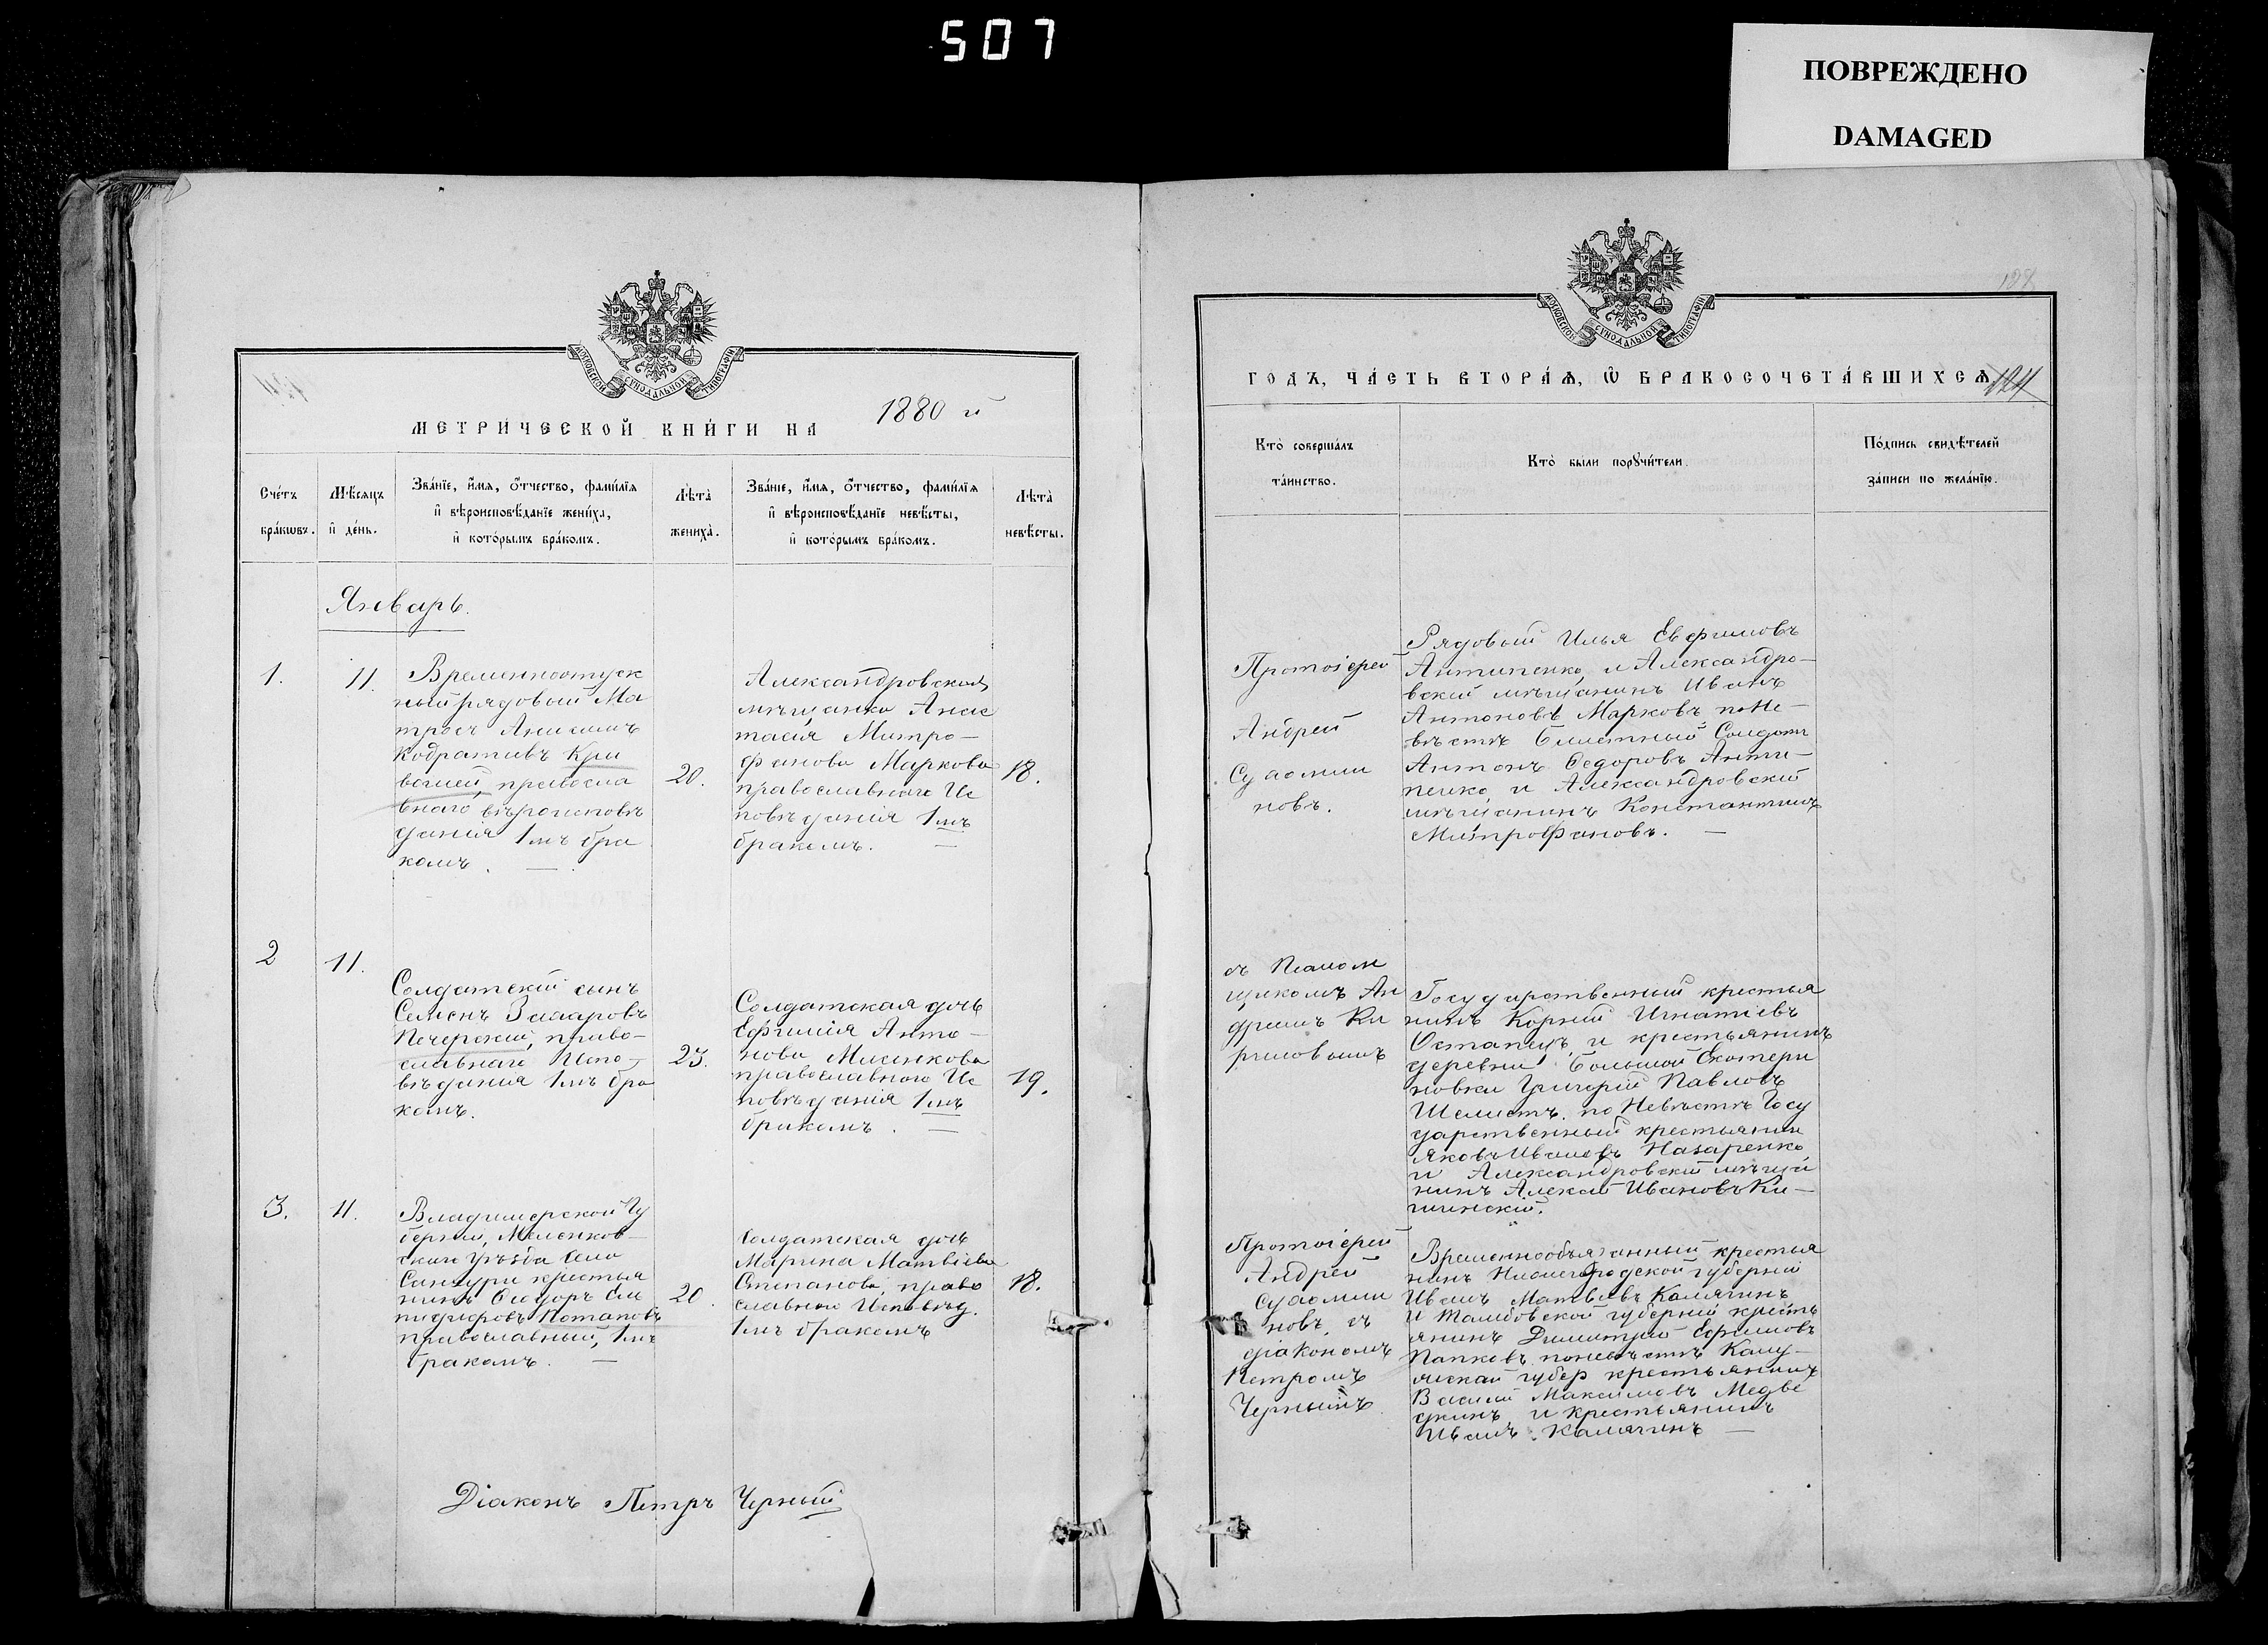 507
ПОВРЕЖДЕНО
DAMAGED
МОСКОВСКОЙ СУНОДАЛЬНОЙ ТИПОГРАФІИ
МЕТРИ́ЧЕСКОЙ КНИ́ГИ НА 1880 й
Сче́тъ бра́кωвъ.
Мѣ́сяцъ и҆ де́нь.
Зва́нїе, и҆́мѧ, о҆́тчество, фами́лїѧ
и҆ вѣроисповѣ́данїе жениха̀,
и҆ кото́рымъ бра́комъ.
Лѣ́та жениха̀.
Зва́нїе, и҆́мѧ, о҆́тчество, фами́лїѧ
и҆ вѣроисповѣ́данїе невѣ́сты,
и҆ кото́рымъ бра́комъ.
Лѣ́та невѣ́сты.
Январь.
1.
11.
Временноотпуск
ный рядовый Ма
тросъ
Кодративъ Кри
вошей, правосла
внаго вѣроисповѣ
данія 1мъ бра
комъ.
20.
Александровская
мѣщанка Анас
тасія Митро-
фанова Маркова
православнаго Ис
повѣданія 1мъ
бракомъ.
18.
2
11.
Солдатскій сынъ
Семенъ Захаровъ
Печерскій, право-
славнаго Испо-
вѣданія 1мъ бра
комъ.
23.
Солдатская дочь
Ефимія Анто-
нова
православнаго Ис
повѣданія 1мъ
бракомъ.
19.
3.
11.
Владимерской Гу
берніи, Меленков-
скаго Уѣзда Села
крестья
нинъ Федоръ
Потаповъ
православный, 1мъ
бракомъ.
20
Солдатская дочь
Марина Матвіева
Степанова, право
славнаго Исповѣд.
1мъ бракомъ
18.
Діаконъ Петръ Черный
128
МОСКОВСКОЙ СУНОДАЛЬНОЙ ТИПОГРАФІИ
ГОДЪ, ЧА́СТЬ ВТОРА́Ѧ, Ѡ҆ БРАКОСОЧЕТА́ВШИХСѦ 124
Кто̀ соверша́лъ
та́инство.
Кто̀ бы́ли порꙋчи́тели.
По́дпись свидѣ́телей
за́писи по жела́нїю.
Протоіерей
Андрей
новъ.
Рядовый Илья Евфимовъ
Антипенко, и Александро-
вскій мѣщанинъ Иванъ
Антоновъ Марковъ по Не-
вѣстѣ Билетный Солдатъ
Антонъ Федоровъ Анти-
пенко и Александровскій
мѣщанинъ Константинъ
Митрофановъ.
съ Псалом
щикомъ Ан
дреемъ Ки
риловымъ
Государственный крестья
нинъ Корній Игнатіевъ
Остапецъ и крестьянинъ
деревни Большой Екатери
новки Григорій Павловъ
Шелестъ. по Невѣстѣ Госу
дарственный крестьянинъ
Яковъ Ивановъ Назаренко
и Александровскій мѣща
нинъ Алексей Ивановъ Ки-
Протоіерей
Андрей
новъ, съ
діакономъ
Петромъ
Чернымъ
Временнообязанный крестья
нинъ Нижегородской губерніи
Иванъ Матвѣевъ Калягинъ
и Тамбовской губерніи кресть
янинъ Димитрій Ефимовъ
Папковъ, по невѣстѣ Калу-
жской губер крестьянинъ
Василій Максимовъ Медве
дкинъ и крестьянинъ
Иванъ Калягинъ